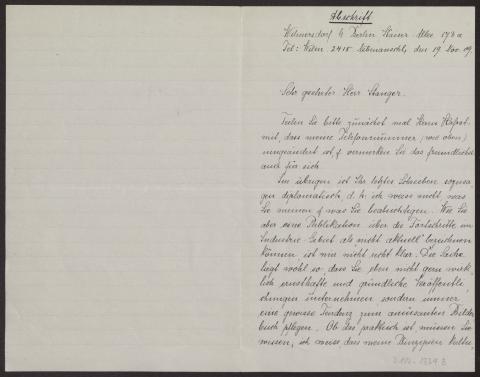 Abschrift
Wilmersdorf b Berlin Kaiser Allee 173 a
Tel: Wilm. 2415 den 19 Nov. 09.
Sehr geehrter Herr Stanger.
Teilen Sie bitte zunächst mal Herrn
mit, dass meine Telefonnummer (wie oben)
umgeändert ist, & vermerken Sie das freundlichst
auch für sich.
Im übrigen ist Ihr letztes Schreiben sozusa
gen diplomatisch, d. h. ich weiss nicht, was
Sie meinen & was Sie beabsichtigen. Wie Sie
aber eine Publikation über die Fortschritte im
Industrie-Gebiet als nicht aktuell bezeichnen
können, ist mir nicht recht klar. Die Sache
liegt wohl so, dass Sie eben nicht gern wirk
lich ernsthafte und gründliche Veröffentli
chungen unternehmen sondern immer
eine gewisse Tendenz zum amüsanten Bilder
buch pflegen. Ob das praktisch ist, müssen Sie
wissen, ich weiss, dass meine Prinzipien